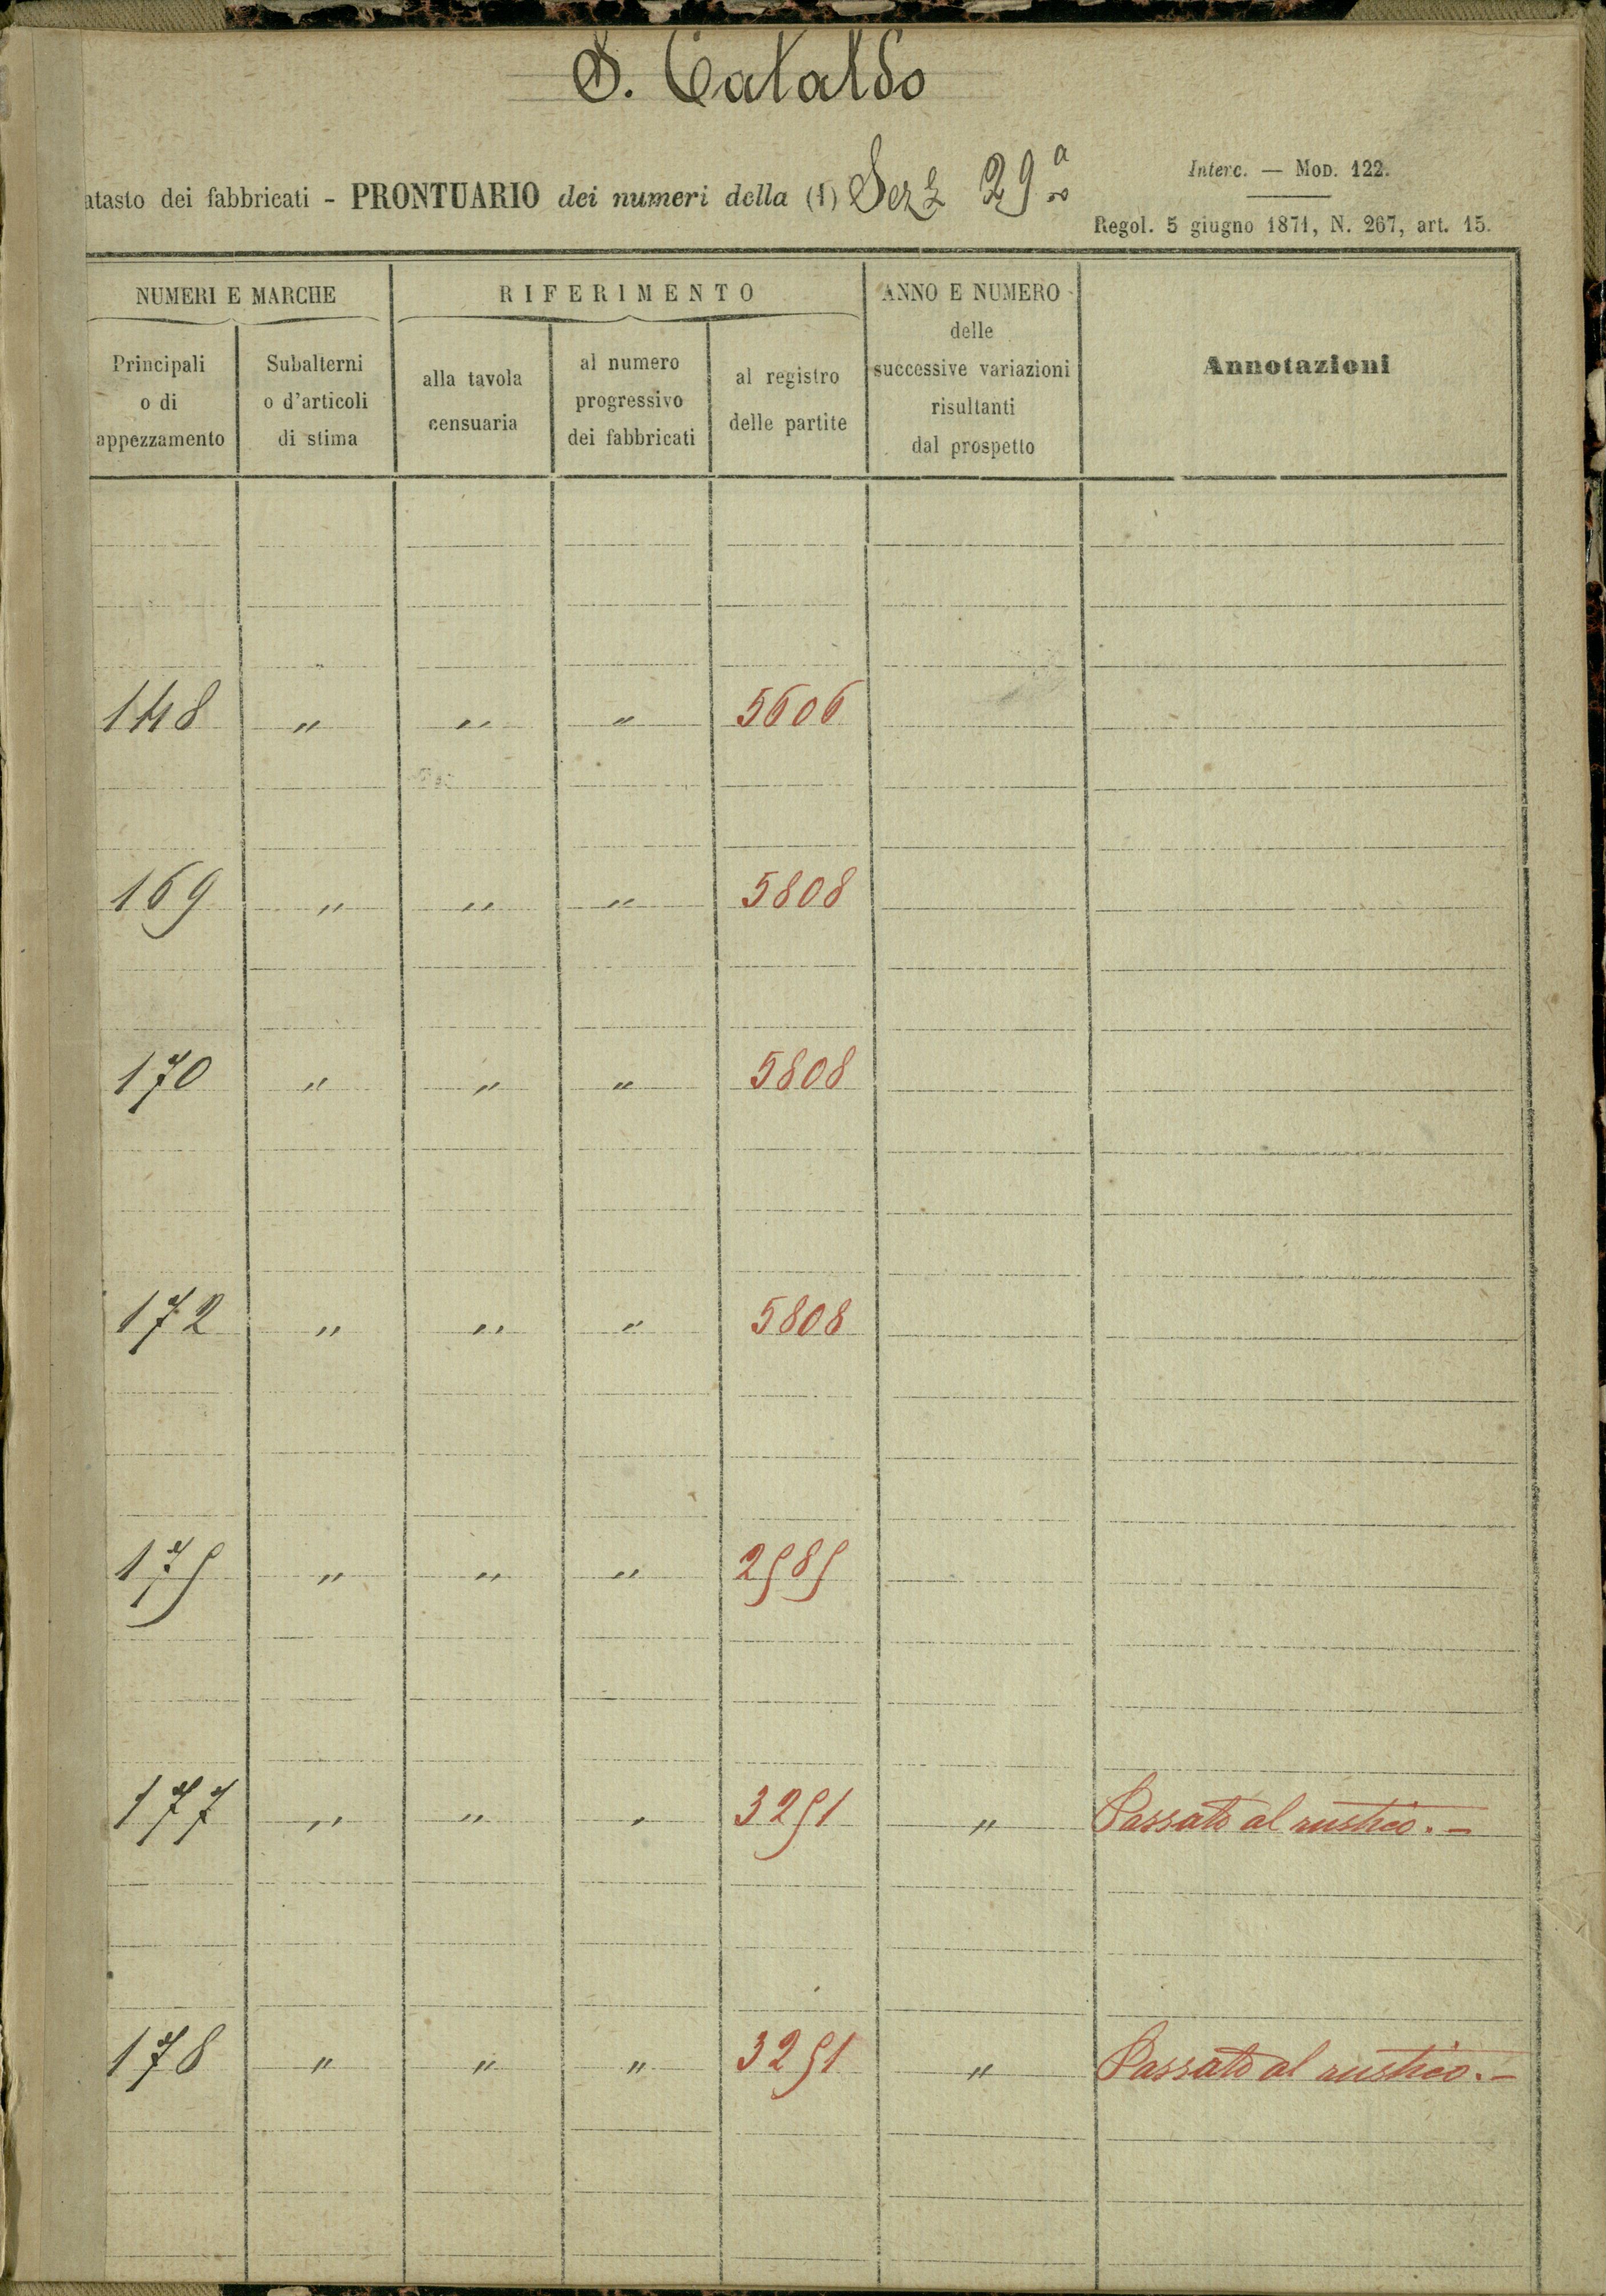 S. Cataldo
atasto dei fabbricati - PRONTUARIO dei numeri della (1) Sez 29ª
Interc. — MOD. 122.
Regol. 5 giugno 1871, N. 267, art. 15.
NUMERI E MARCHE
RIFERIMENTO
ANNO E NUMERO
delle
successive variazioni
risultanti
dal prospetto
Annotazioni
Principali
o di
appezzamento
Subalterni
o d'articoli
di stima
alla tavola
censuaria
al numero
progressivo
dei fabbricati
al registro
delle partite
148 " " " 5606
169 " " " 5808
170 " " " 5808
172 " " " 5808
175 " " " 2585
177 " " " 3251 " Passato al rustico. -
178 " " " 3251 " Passato al rustico. -